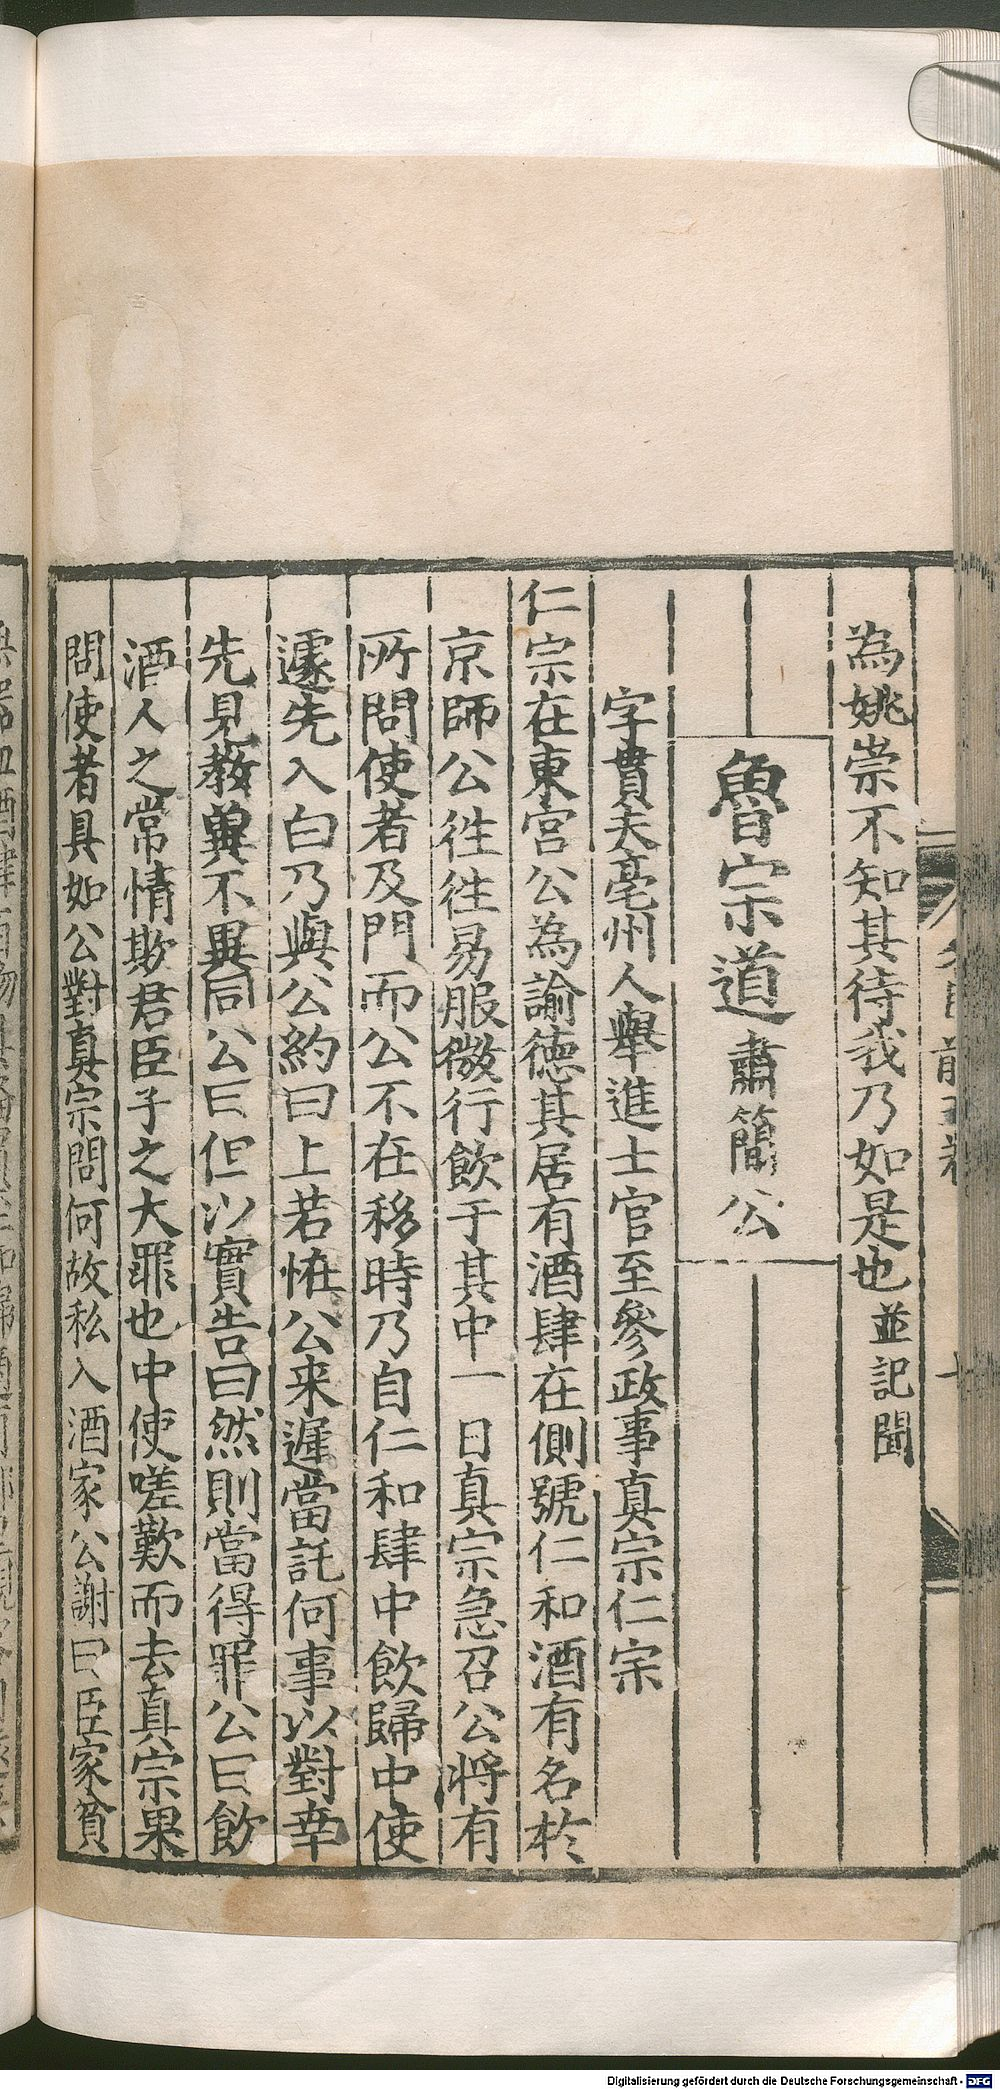 為姚崇不知其待我乃如是也並記聞
魯宗道肅簡公
字貫夫亳州人舉進士官至參政事真宗仁宗
仁宗在東宮公為諭德其居有酒肆在側號仁和酒有名於
京師公徃徃易服微行飲于其中一日真宗急召公將有
所問使者及門而公不在移時乃自仁和肆中飲歸中使
遽先入白乃與公約曰上若恠公来遲當託何事以對幸
先見教兾不異同公曰但以實告曰然則當得罪公曰飲
酒人之常情欺君臣子之大罪也中使嗟歎而去真宗果
問使者具如公對真宗問何故私入酒家公謝曰臣家貧
Digitalisierung gefördert durch die Deutsche Forschungsgemeinschaft - DFG